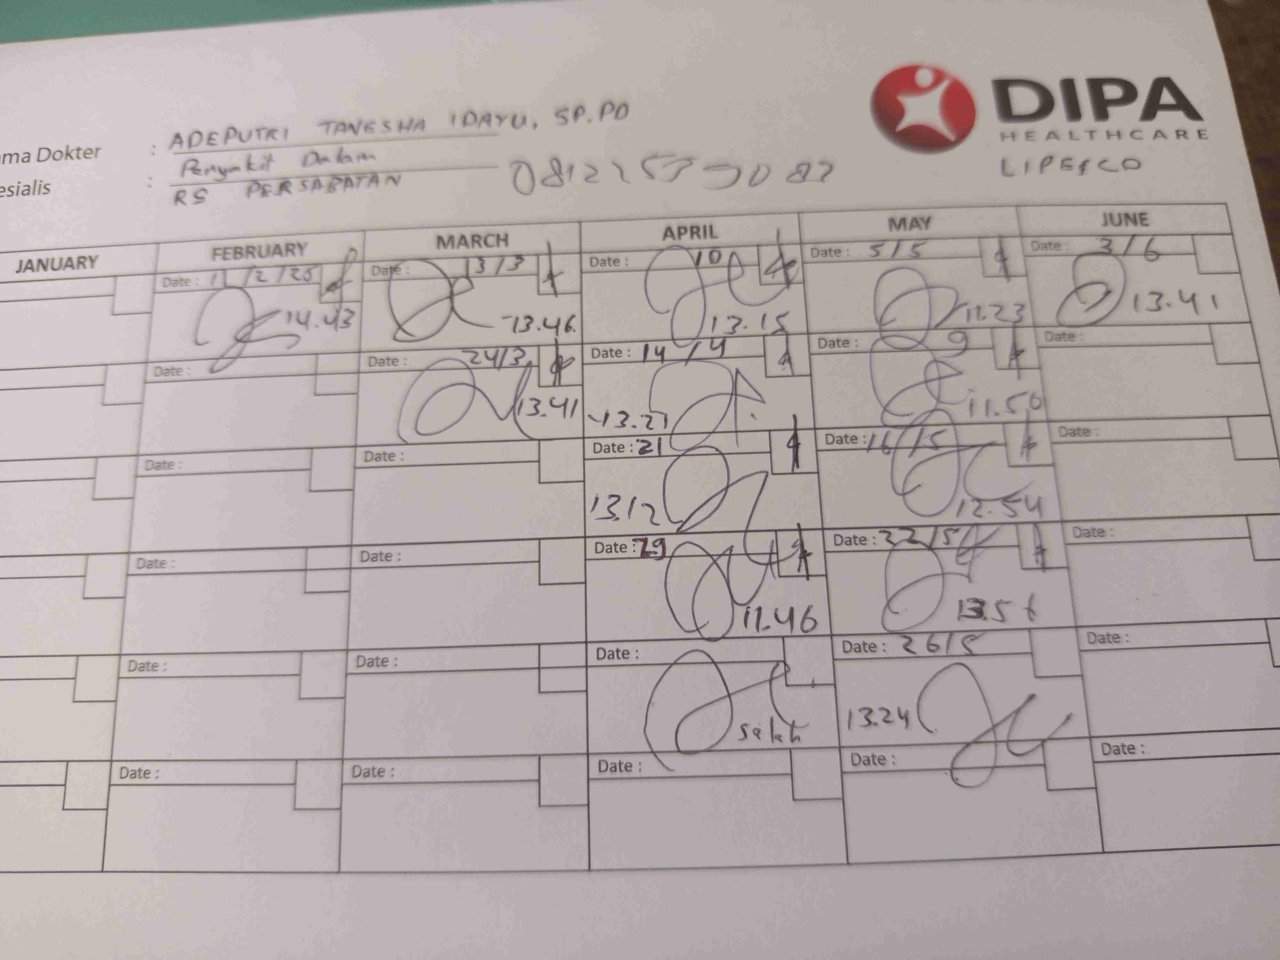 DIPA
HEALTHCARE
LIPESCO
ma Dokter : ADEPUTRI TANESHA IDAYU, SP.PD
esialis : Penyakit Dalam
RS PERSAHATAN
JANUARY FEBRUARY MARCH APRIL MAY JUNE
Date : 11/2/25 Date : 13/3 Date : 10 Date : 5/5 Date : 3/6
14.43 13.46 13.15 11.23 13.41
Date : Date : 24/3 Date : 14/4 Date : 9 Date :
13.41 13.21 11.50
Date : Date : Date : 21 Date : 16/5 Date :
13.12 12.54
Date : Date : Date : 29 Date : 22/5 Date :
11.46 13.56
Date : Date : Date : Date : 26/5 Date :
salah 13.24
Date : Date : Date : Date : Date :